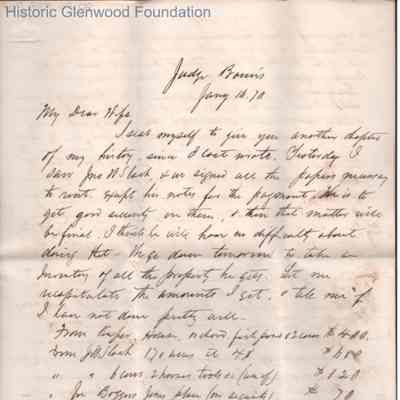 Historic Glenwood Foundation
Judge Bowers
Jany 10.70
My Dear Wife
I seat myself to give you another chapter
of my history since I last wrote. Yesterday I
saw Jno W Slack, & we signed all the papers necessary
to rent, except his notes for the payment. He is to
get good security on them, & then that matter will
be final. I think he will have no difficulty about
doing that - We go down tomorrow to take an
Inventory of all the property he gets. Let me
recapitulate the amounts I get, & tell me if
I have not done pretty well.
From Cooper, House, 2 cows $400.
From J W Slack 170 acres at 4$ $680
" " 6 cows 2 horses tools &c $120
" Joe Jones place (no security) $ 70